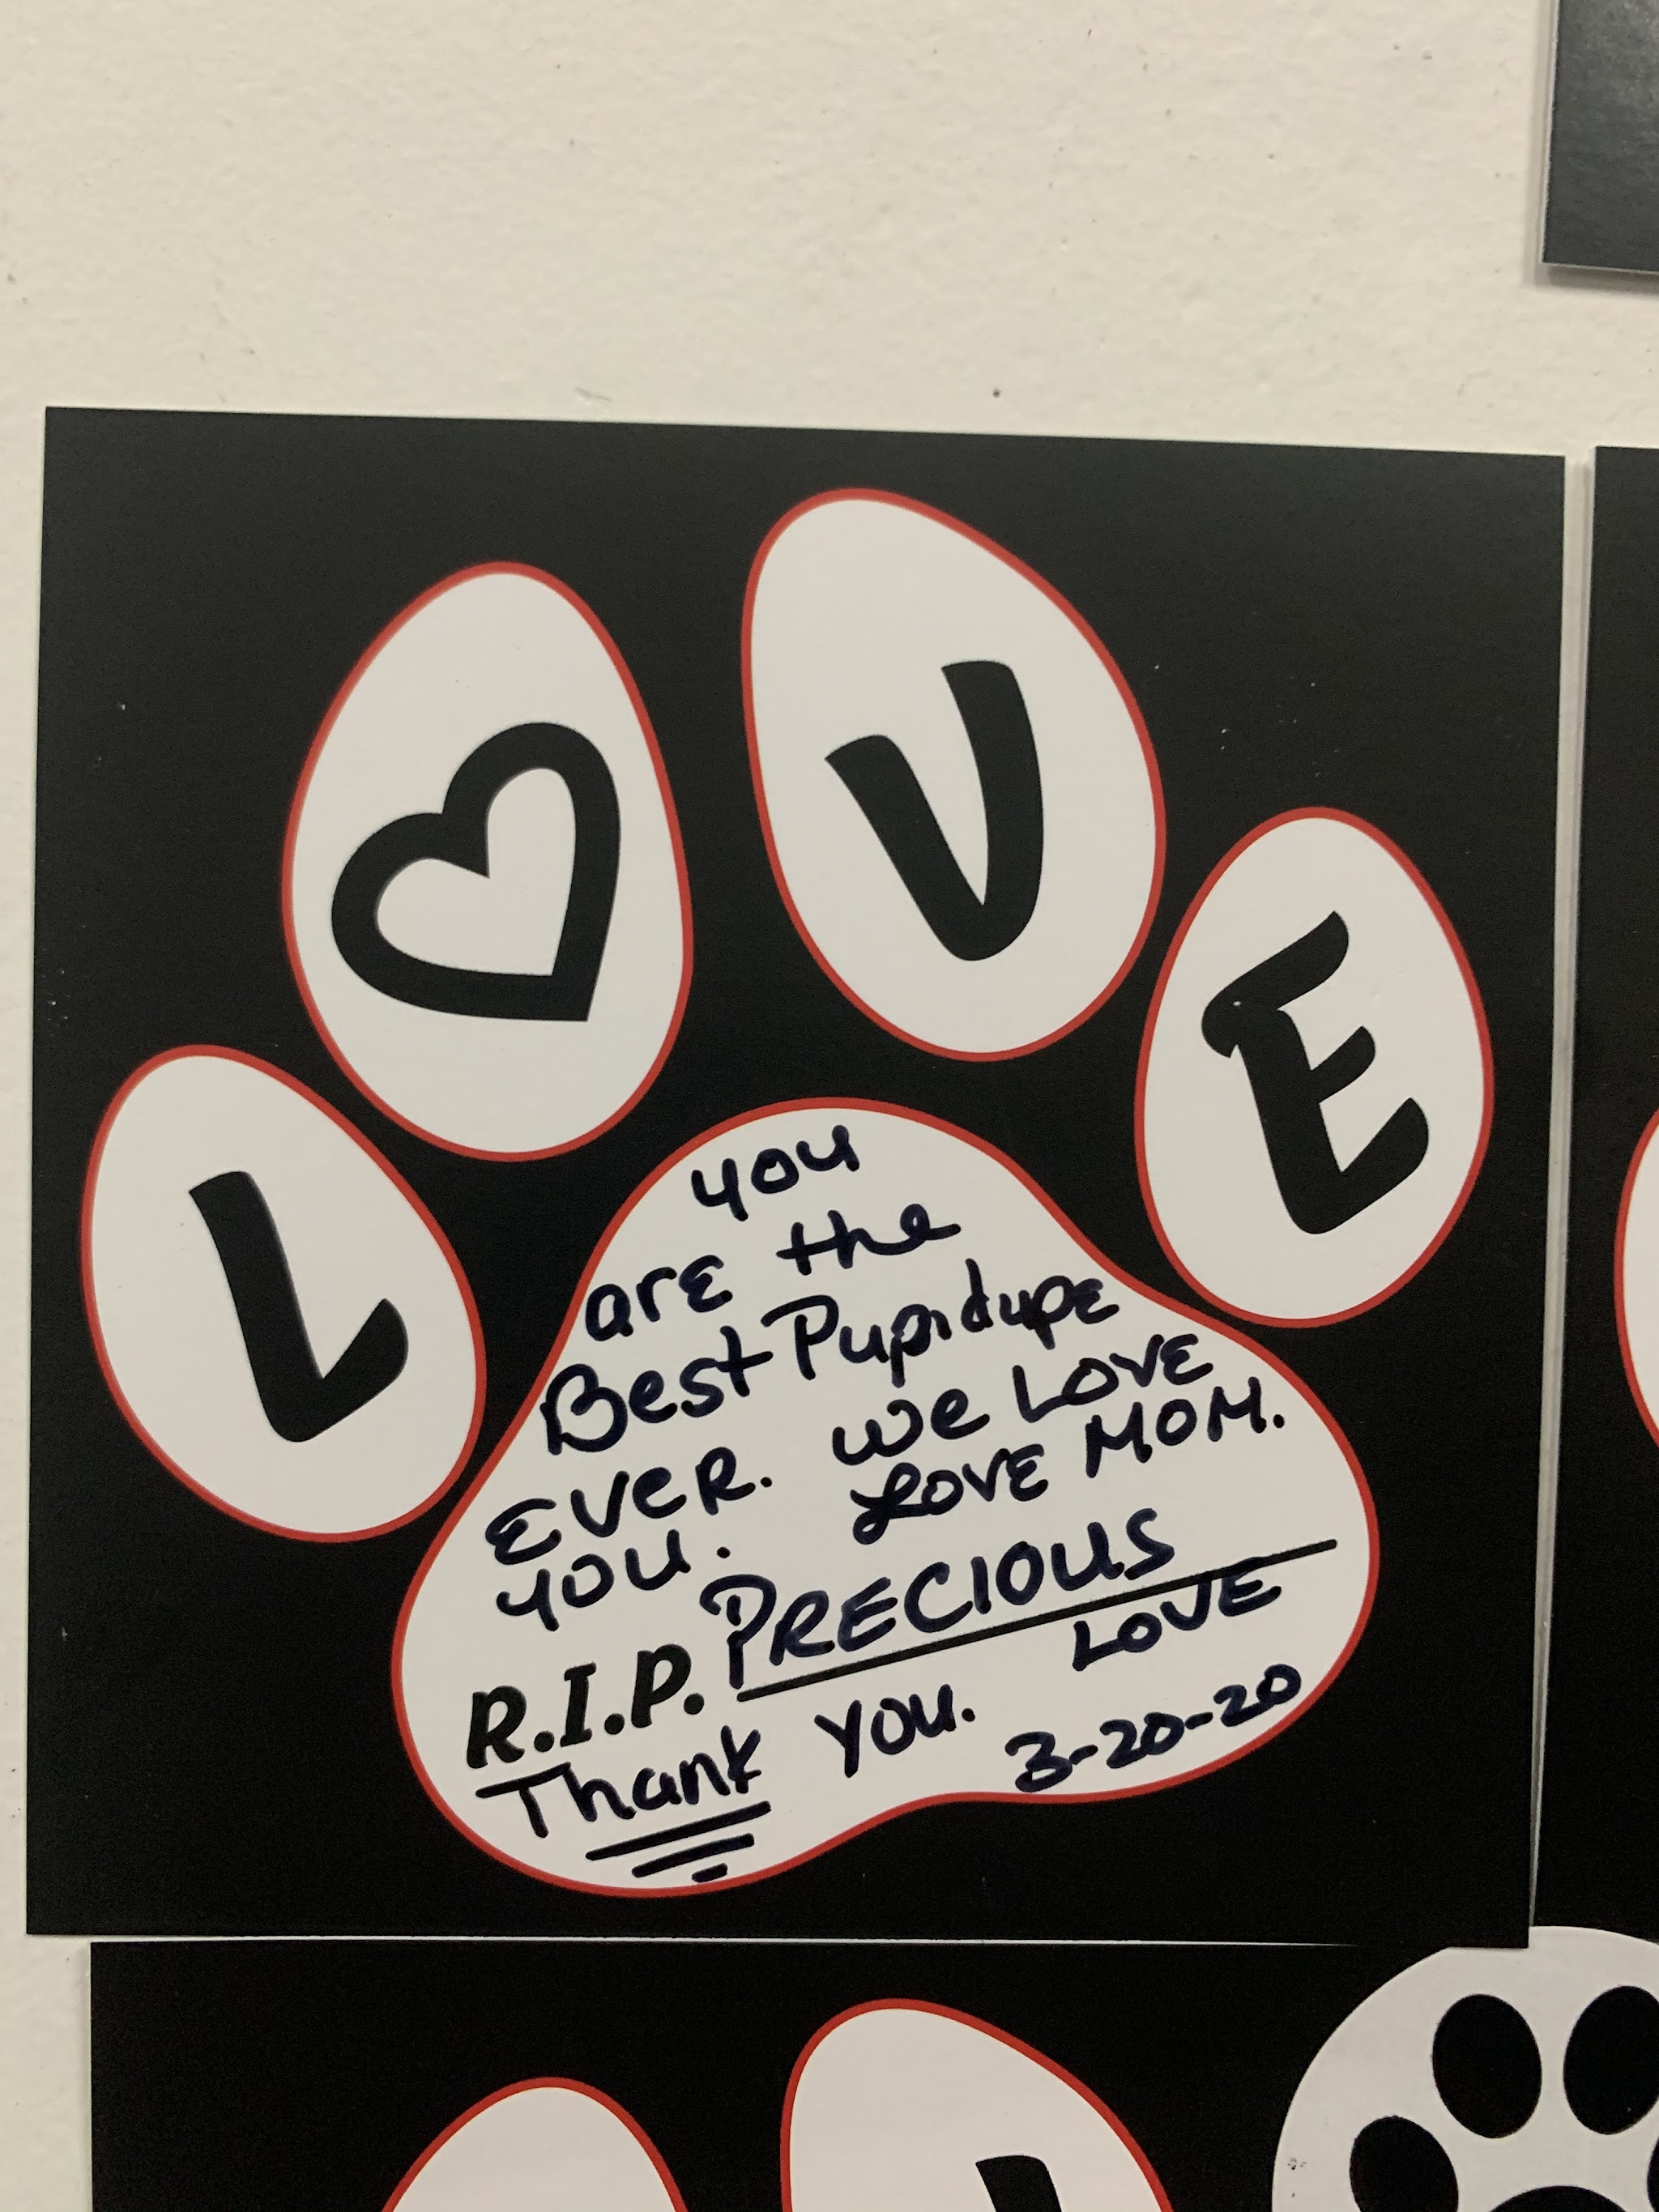 L♡VE
you
are the
Best Pupidupe
EVER. we LOVE
you. LOVE MOM.
R.I.P. PRECIOUS
Thank you. LOVE
3-20-20